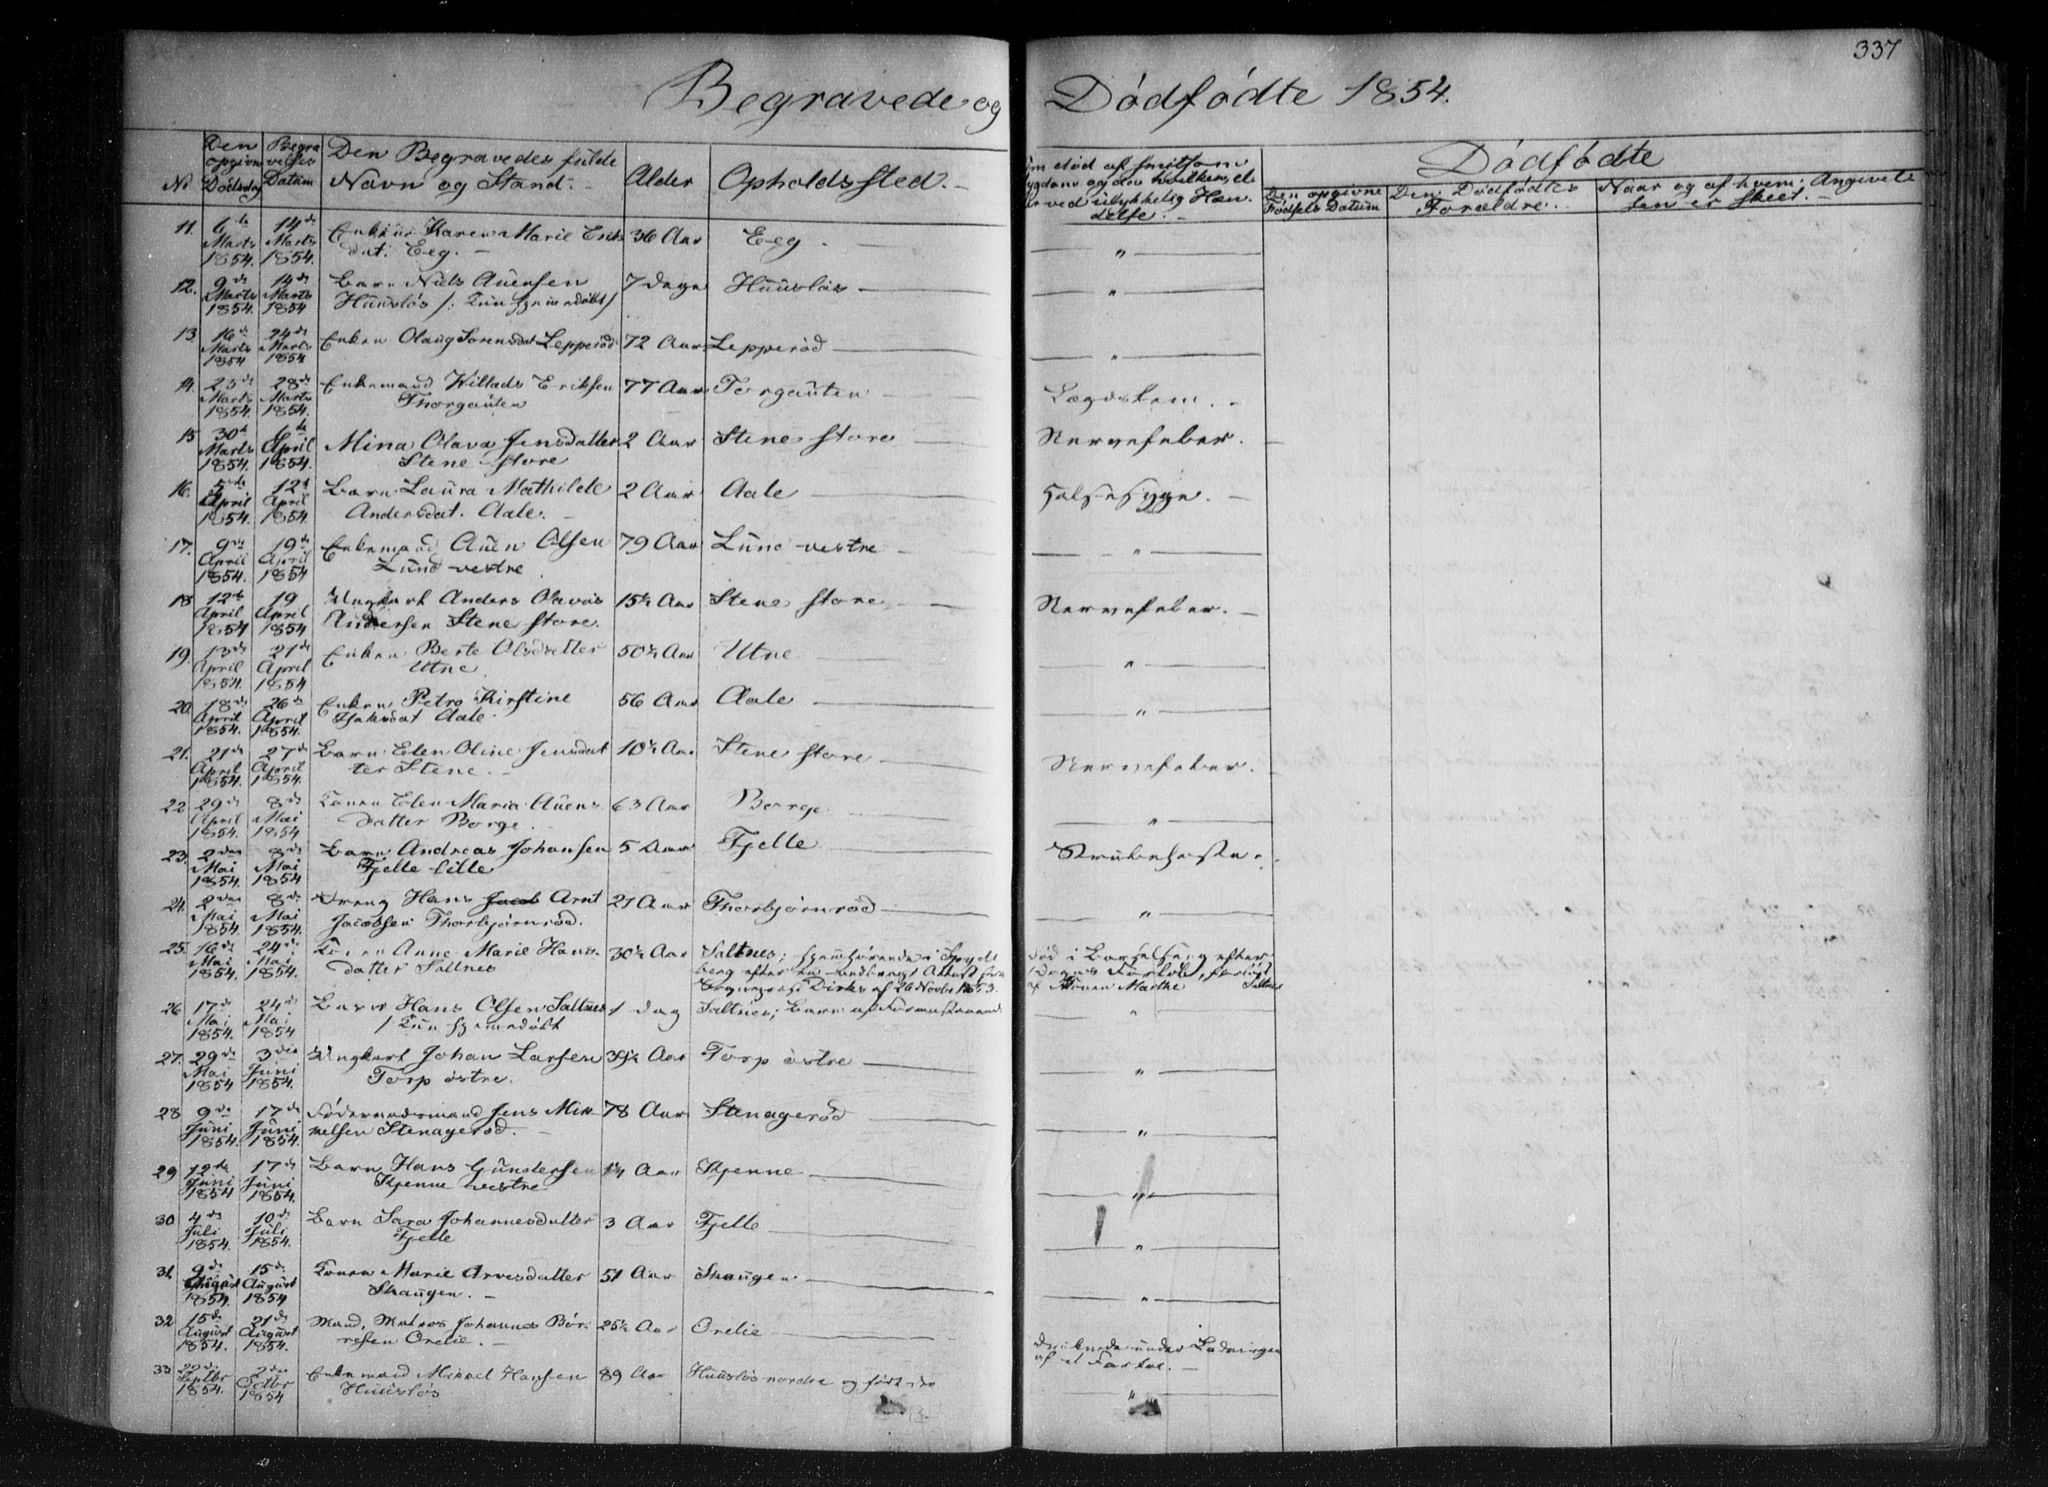 337
Begravede og Dödfödte 1854.
No
Den opgivne Dödsdag
Begravelses Datum
Den Begravedes fulde Navn og Stand.
Alder
Opholdssted.
Om död af smitsom Sygdom og da hvilken, eller ved ulykkelig Hændelse.
Dödfödte
Den opgivne Födsels Datum
Den Dödfödtes Forældre.
Naar og af hvem Angivelsen er skeet.
11. 6te Marts 1854. 14de Marts 1854. Karen Marie Eriksdat. Eeg. 36 Aar Eeg. "
12. 9de Marts 1854. 14de Marts 1854 Barn Niels Auensen Huuslös /: kun hjemmedöbt / 7 Dage Huuslös "
13. 16de Marts 1854 24de Marts 1854 Enken Olaug Sorensdat Lepperöd 72 Aar Lepperöd "
14. 23de Marts 1854. 28de Marts 1854. Enkemand Willads Eriksen Thorgauten 77 Aar Torgauten Lægdslem.
15 30te Marts 1854. 6te April 1854. Mina Olava Jensdatter Stene store 2 Aar Stene store Nervefeber.
16. 5te April 1854. 12te April 1854 Barn Laura Mathilde Andersdat. Aale. 2 Aar Aale Halsesyge.
17. 9de April 1854. 19de April 1854 Enkemand Auen Olsen Lund vestre 79 Aar Lund vestre "
18 12te April 1854 19 April 1854 Ungkarl Anders Olavus Andersen Stene store. 15½ Aar Stene store Nervefeber.
19. 13de April 1854. 21de April 1854 Enken Berte Olsdatter Utne 50½ Aar Utne "
20. 18de April 1854. 26de April 1854. Enken Petro Kirstine Aale 56 Aar Aale "
21. 21de April 1854. 27de April 1854. Barn Elen Oline Jensdatter Stene. 10½ Aar Stene store Nervefeber.
22 29de April 1854. 8de Mai 1854 Konen Elen Maria Auensdatter Borge 63 Aar Borge "
23. 2den Mai 1854. 8de Mai 1854 Barn Andreas Johansen Fjelle lille 5 Aar Fjelle Strubehoste.
24. 2den Mai 1854 8de Mai 1854. Dreng Hans Jacob Arnt Jacobsen Thorbjörnröd. 21 Aar Thorbjörnröd "
25. 16de Mai 1854. 24de Mai 1854. Konen Anne Marie Hansdatter Saltnes 30½ Aar Saltnes; hjemhörende i Spydeberg efter en Attest fra Dirks af 26 Novbr 1853. Död i Barselseng efter Dages Forlöb, af Konen Marthe Saltnes
26 17de Mai 1854. 24de Mai 1854 Barn Hans Olsen Saltnes / kun hjemmedöbt 1 Dag Saltnes; Barn af Foranstaaende "
27. 29de Mai 1854 3die Juni 1854. Ungkarl Johan Larsen Torp östre. 39½ Aar Torp östre "
28 9de Juni 1854. 17de Juni 1854. Födernadsmand Jens Mikkelsen Stenageröd. 78 Aar Stenageröd "
29 12te Juni 1854 17de Juni 1854. Barn Hans Gundersen Skjenne vestre 1¼ Aar Skjenne "
30 4de Juli 1854. 10de Juli 1854. Barn Sara Johannesdatter Fjelle 3 Aar Fjelle "
31. 9de August 1854. 15de August 1854 Konen Marie Arvesdatter Skaugen. 51 Aar Skaugen "
32 15de August 1854. 21de August 1854. Mand, Matros Johannes Börresen Orelie. 25½ Aar Orelie Druknede under Ladningen af et Fartøi.
33 22de Septbr 1854. 2den Octbr 1854 Enkemand Mikael Hansen Huuslös 89 Aar Huuslös nordre og "